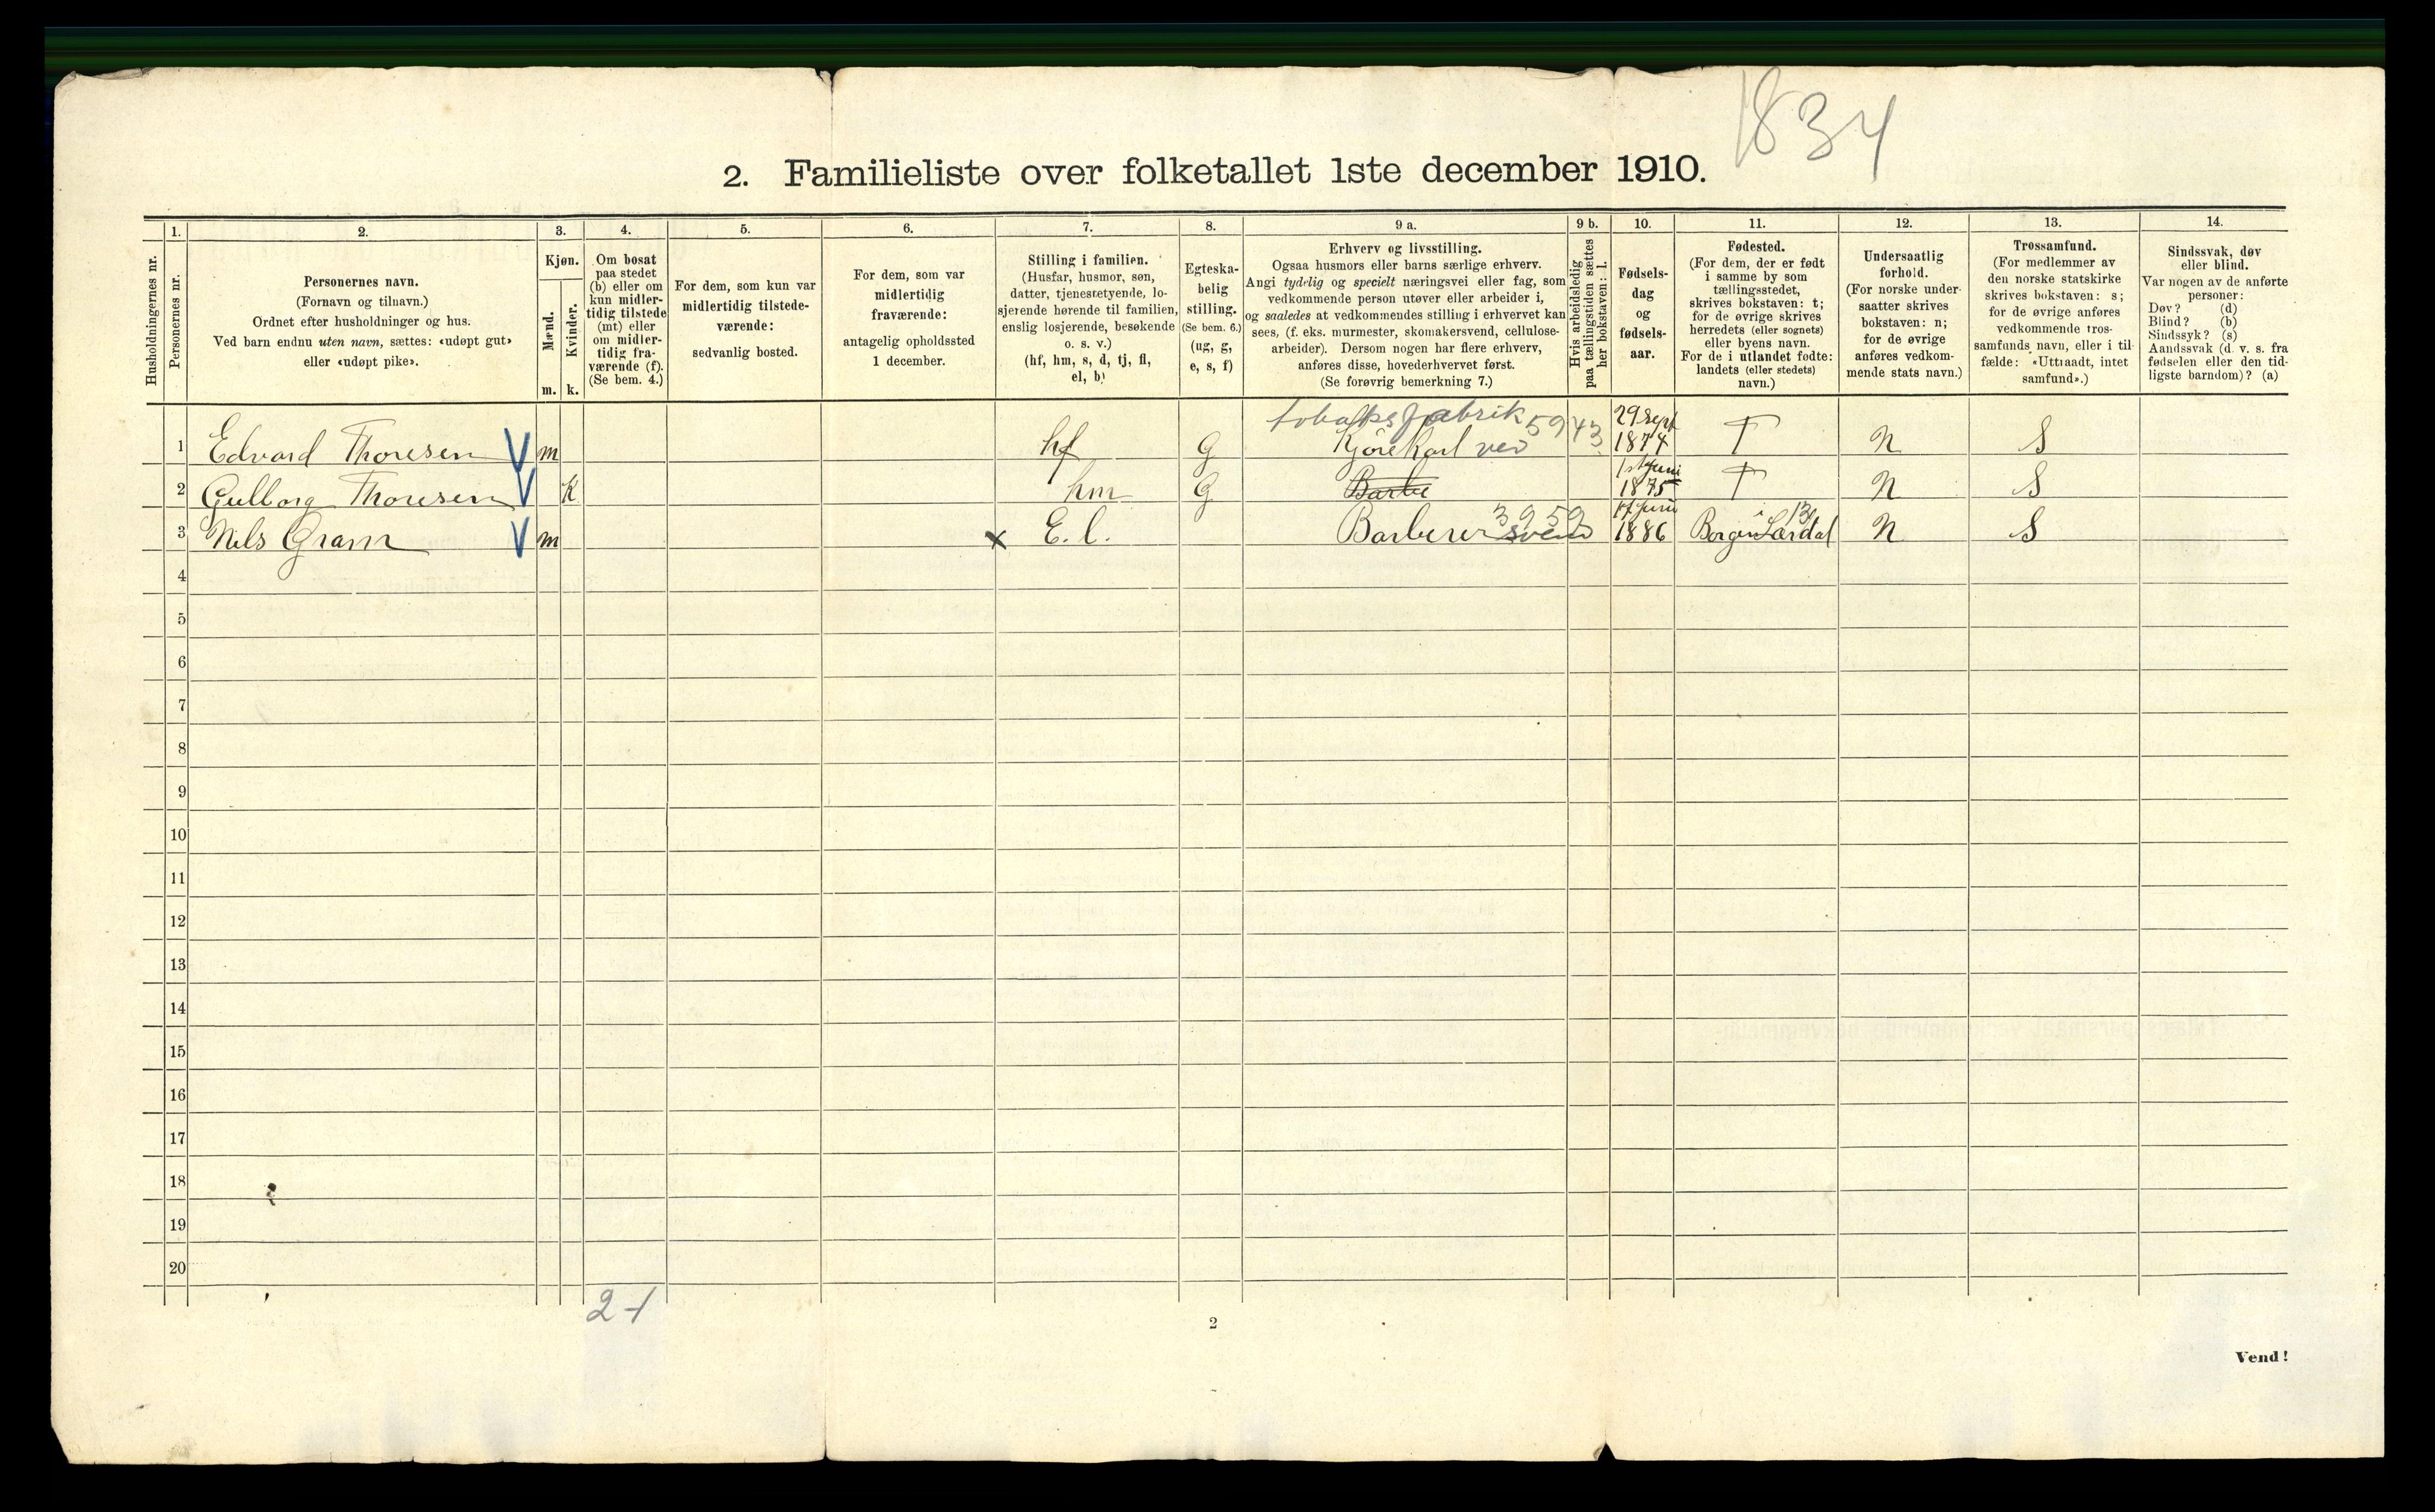 1834
2. Familieliste over folketallet 1ste december 1910.
Husholdningernes nr.
1.
Personernes nr.
2.
Personernes navn.
(Fornavn og tilnavn.)
Ordnet efter husholdninger og hus.
Ved barn endnu uten navn, sættes: «udøpt gut»
eller «udøpt pike».
3.
Kjøn.
Mænd.
m.
Kvinder.
k.
4.
Om bosat
paa stedet
(b) eller om
kun midler-
tidig tilstede
(mt) eller
om midler-
tidig fra-
værende (f).
(Se bem. 4.)
5.
For dem, som kun var
midlertidig tilstede-
værende:
sedvanlig bosted.
6.
For dem, som var
midlertidig
fraværende:
antagelig opholdssted
1 december.
7.
Stilling i familien.
(Husfar, husmor, søn,
datter, tjenestetyende, lo-
sjerende hørende til familien,
enslig losjerende, besøkende
o. s. v.)
(hf, hm, s, d, tj, fl,
el, b)
8.
Egteska-
belig
stilling.
(Se bem. 6.)
(ug, g,
e, s, f)
9 a.
Erhverv og livsstilling.
Ogsaa husmors eller barns særlige erhverv.
Angi tydelig og specielt næringsvei eller fag, som
vedkommende person utøver eller arbeider i,
og saaledes at vedkommendes stilling i erhvervet kan
sees, (f. eks. murmester, skomakersvend, cellulose-
arbeider). Dersom nogen har flere erhverv,
anføres disse, hovederhvervet først.
(Se forøvrig bemerkning 7.)
9 b.
Hvis arbeidsledig
paa tællingstiden sættes
her bokstaven: l.
10.
Fødsels-
dag
og
fødsels-
aar.
11.
Fødested.
(For dem, der er født
i samme by som
tællingsstedet,
skrives bokstaven: t;
for de øvrige skrives
herredets (eller sognets)
eller byens navn.
For de i utlandet fødte:
landets (eller stedets)
navn.)
12.
Undersaatlig
forhold.
(For norske under-
saatter skrives
bokstaven: n;
for de øvrige
anføres vedkom-
mende stats navn.)
13.
Trossamfund.
(For medlemmer av
den norske statskirke
skrives bokstaven: s;
for de øvrige anføres
vedkommende tros-
samfunds navn, eller i til-
fælde: «Uttraadt, intet
samfund».)
14.
Sindssvak, døv
eller blind.
Var nogen av de anførte
personer:
Døv? (d)
Blind? (b)
Sindssyk? (s)
Aandssvak (d. v. s. fra
fødselen eller den tid-
ligste barndom)? (a)
tobaksfabrik 59 43 29 sept
1 Edvard Thoresen V m hf G Kjørekarl ved 1874 T N S
1st juni
2 Gulborg Thoresen V K hm G Barbe 1875 T N S
39 59 17 juni
3 Nils Gram V m x E. l. Barberer svend 1886 Borgen Lærdal N S
4
5
6
7
8
9
10
11
12
13
14
15
16
17
18
19
20
2-1
2
Vend!